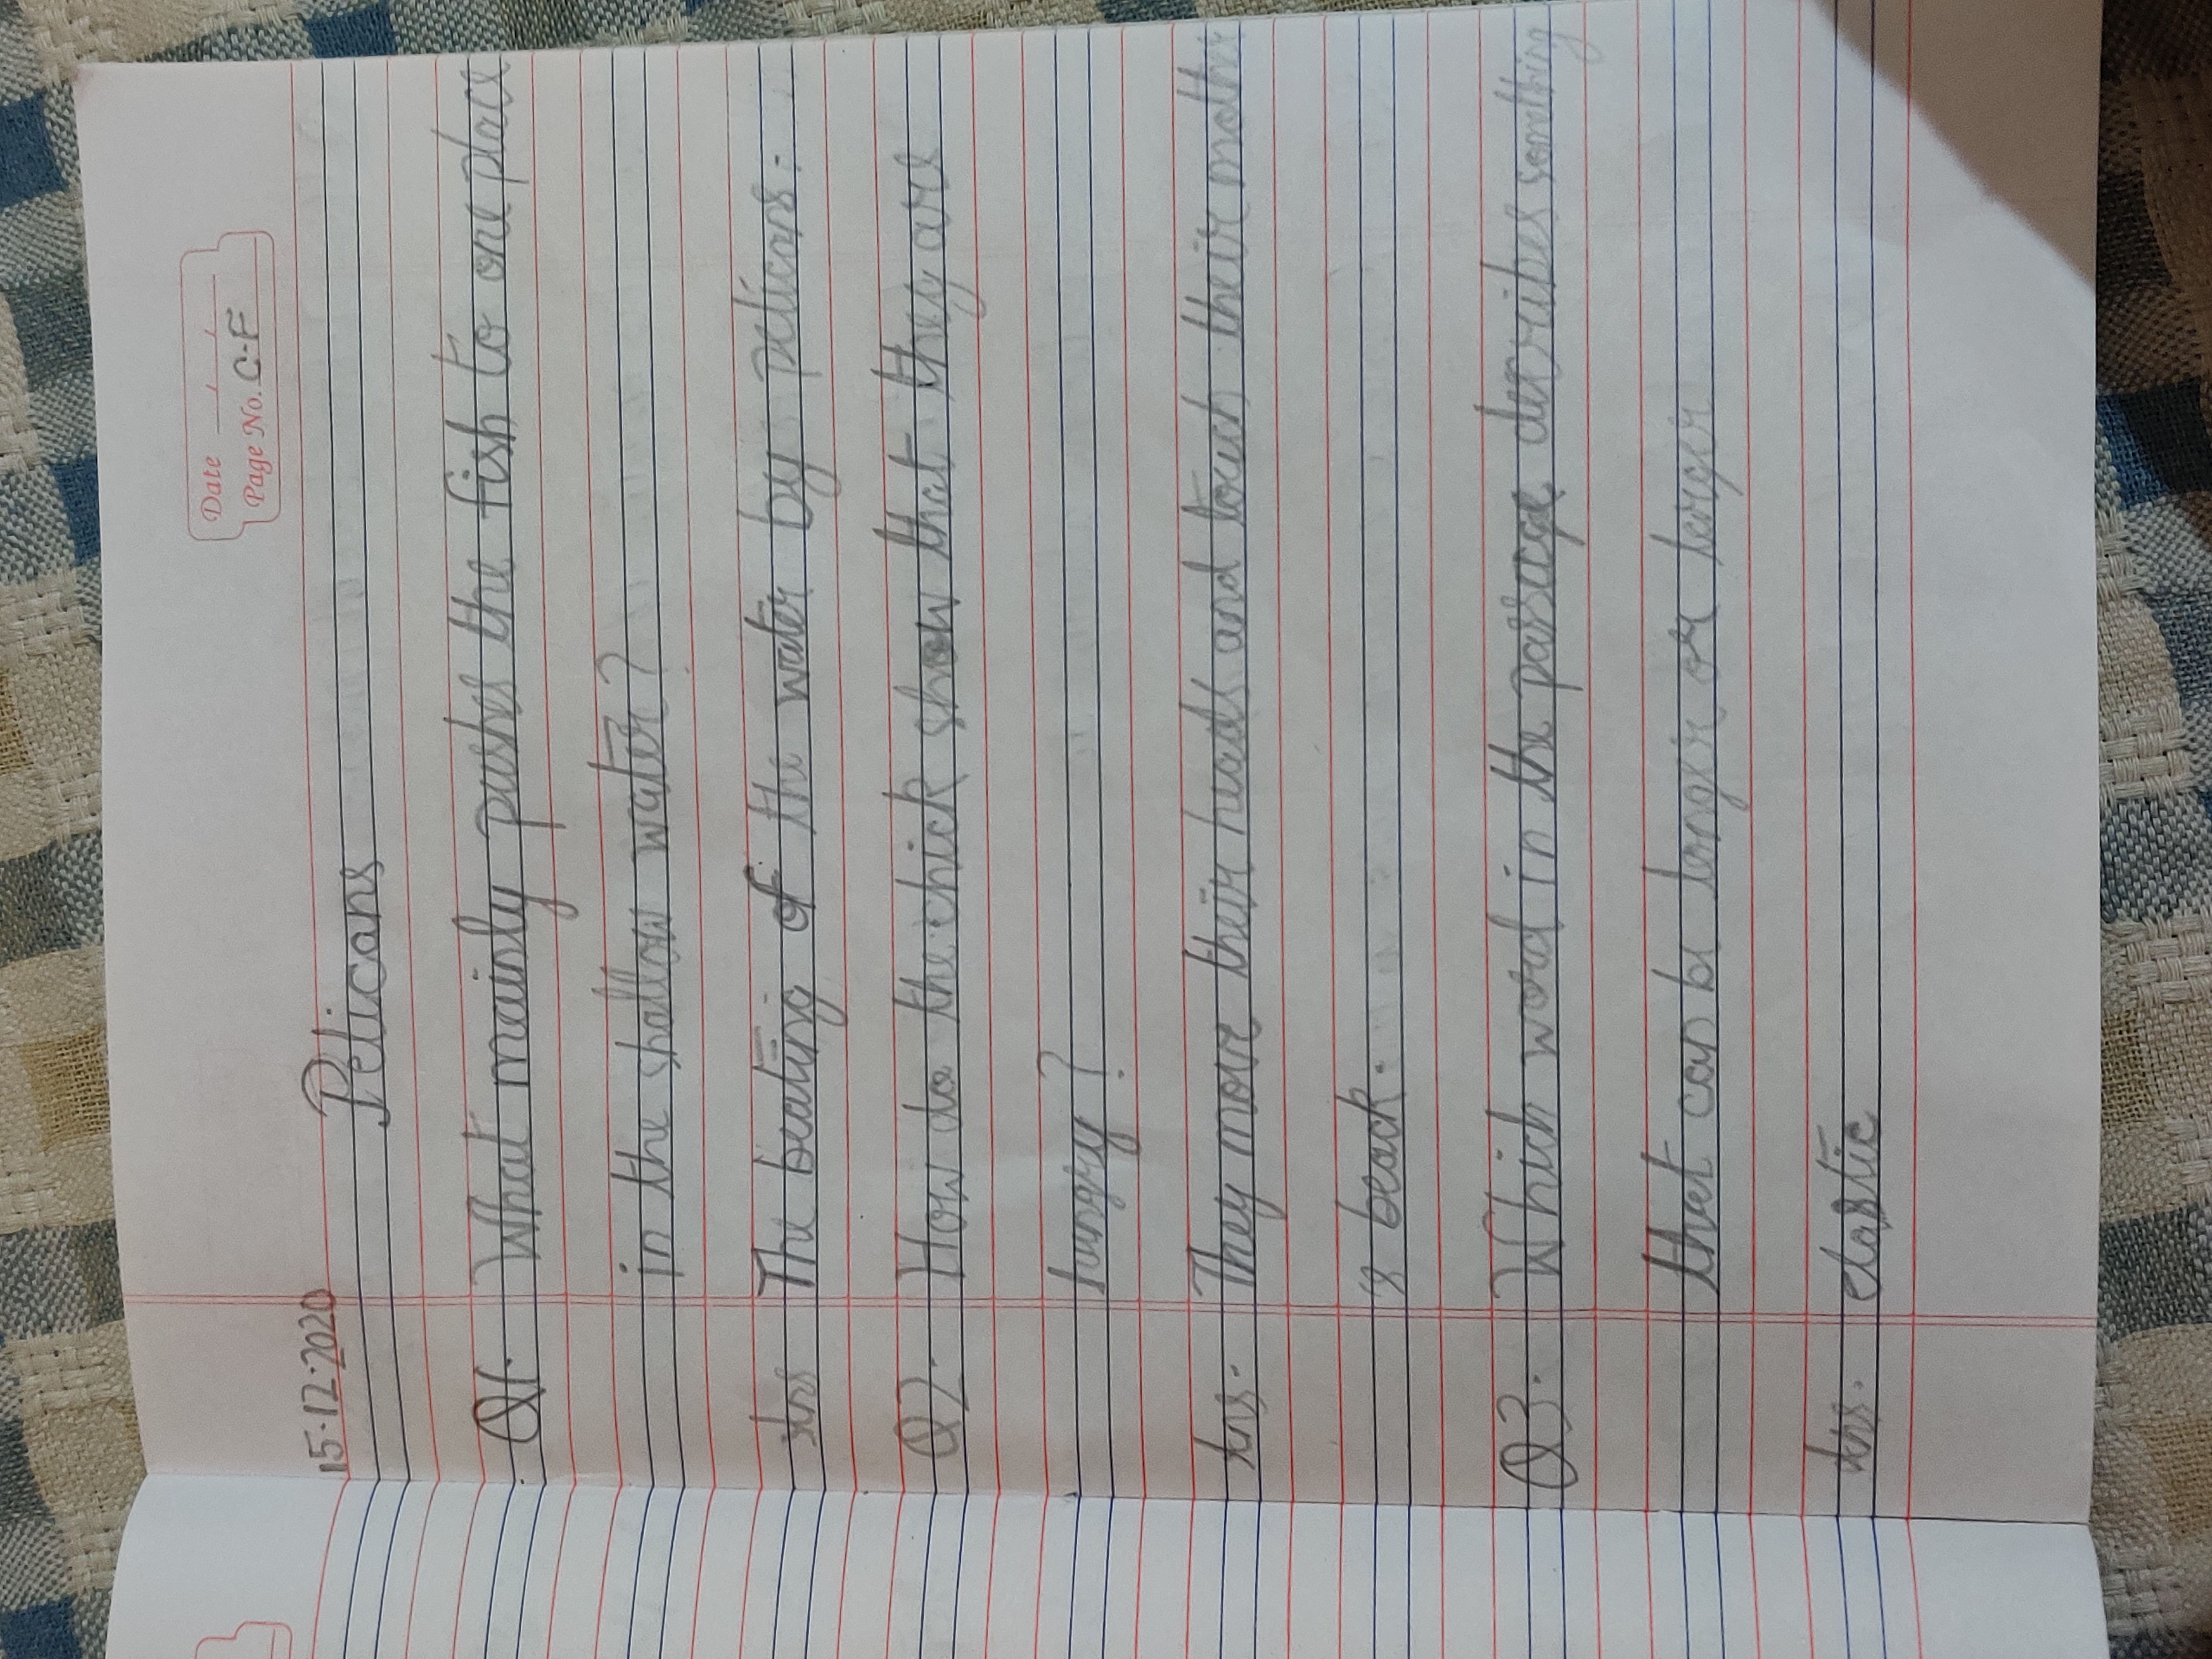 Date
Page No. C-F
15.12.2020
Pelicans
Q1. What mainly pushes the fish to one place
in the shallow water?
Ans The beating of the water by pelicans.
Q2. How do the chick show that they are
hungry?
Ans. They move their heads and touch their mother
's beack.
Q3. Which word in the passage describes something
that can be longer or larger
Ans. elastic